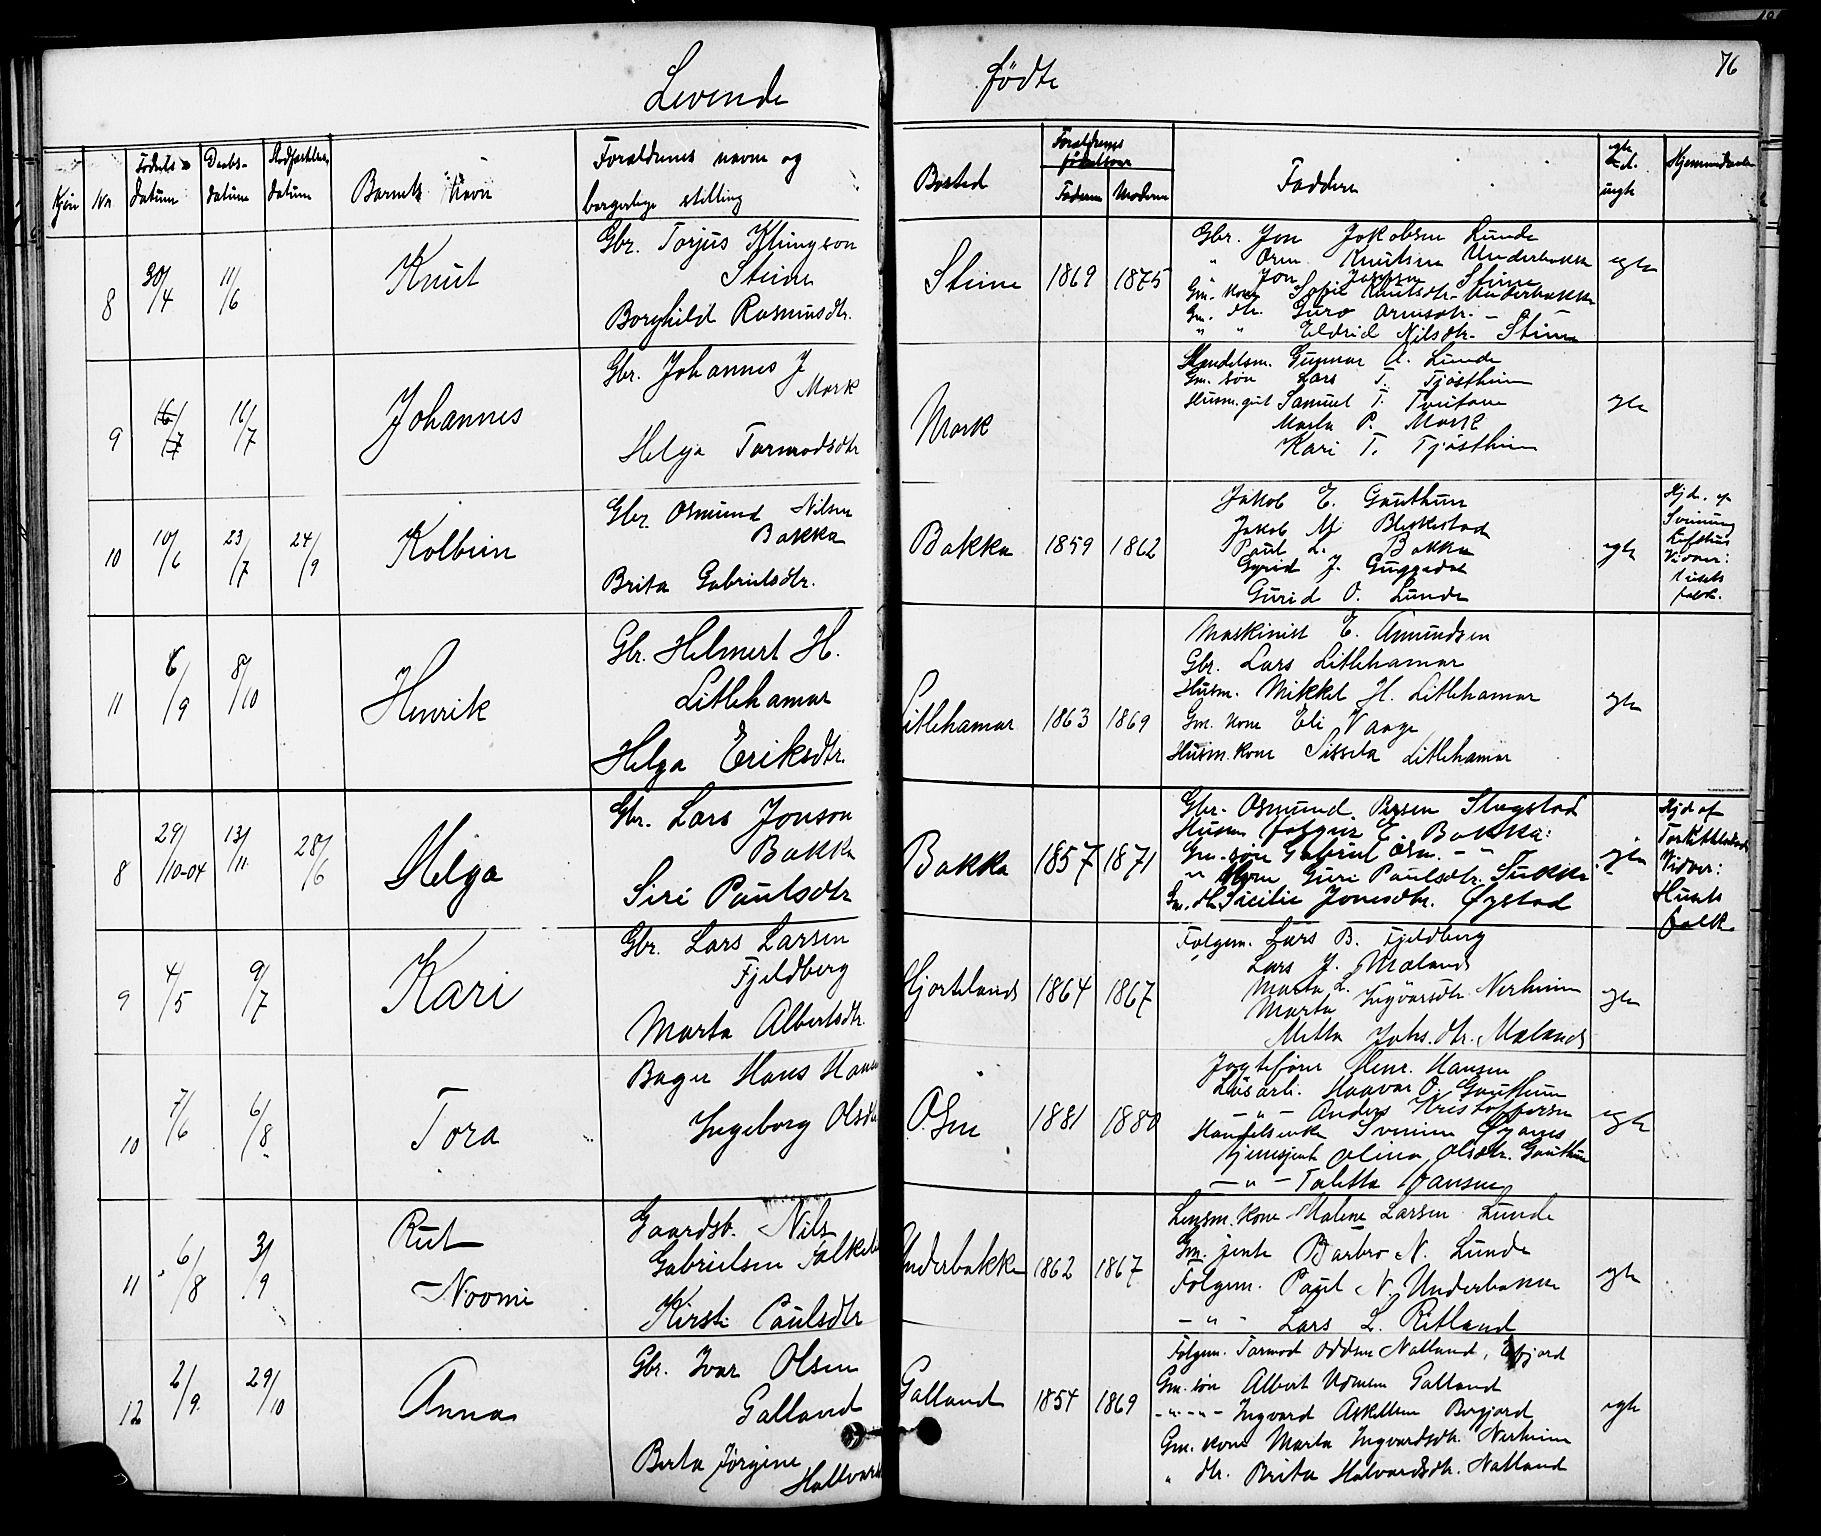 76
Levende fødte
Kjøn
No
Fødsels-
datum
Daabs-
datum
Stadfæstelses
datum
Barnets Navn
Foreldrenes navne og
borgerlige stilling
Bosted
Foreldrenes
fødselsaar
Faderen
Moderen
Faddere
egte
ell.
uegte
Hjemmedaab
8
30/4
11/6
Knut
Gbr. Torjus Klungson
Steine
Borghild Rasmusdtr.
Steine
1869
1875
Gbr. Jon Jakobsen Lunde
" Orm Knutsen Underbakke
" Jon Jonsen Steine
Gm. kone Sofie Knutsdtr. Underbakke
Gm. dtr. Guro Ormsdtr. -
" " Eldrid Nilsdtr. Steine
egte
9
16/7
16/7
Johannes
Gbr. Johannes J
Mork
Helga Tormodsdtr
Mork
Handelsm. Gunnar A. Lunde
Gm. søn Lars T. Tjøstheim
Husm. gut Samuel T. Tveitane
Marta P. Mork
Kari T. Tjøstheim
egte
10
10/6
23/7
24/9
Kolbein
Gbr. Osmund Nilsen
Bakka
Brita Gabrielsdtr.
Bakka
1859
1862
Jakob E. Gauthun
Jakob M. Bleskestad
Paul L. Bakka
Gyrid J. Guggedal
Gurid O. Lunde
egte
Hjd. af
Sveinung
Lofthus
Vidner:
husets
folk.
11
6/9
8/10
Henrik
Gbr. Helmert H.
Litlehamar
Helga Eriksdtr.
Litlehamar
1863
1869
Maskinist E. Amundsen
Gbr. Lars Litlehamar
Husm. Mikkel H. Litlehamar
Gm. kone Eli Vaage
Husm. kone Sissela Litlehamar
egte
8
29/10-04
13/11
28/6
Helga
Gbr. Lars Jonson
Bakka
Siri Paulsdtr
Bakka
1857
1871
Gbr. Osmund Persen Slogstad
Husm E. Bakka:
Gm. søn Gabriel Osm. - -
" kone Guri Paulsdtr.
Gm. dtr. Sicilie Jonesdtr. Øystad
egte
Hjd af
Vidner:
Husets
folk
9
4/5
9/7
Kari
Gbr. Lars Larsen
Fjeldberg
Marta Albertsdtr.
Hjorteland
1864
1867
Folgem. Lars B. Fjeldberg
Lars J. Mæland
Marta L.
Marta Ingvarsdtr. Nerheim
Metta Johs. dtr. Mæland
egte
10
7/6
6/8
Tora
Bager Hans Hansen
Ingeborg Olsdtr
Osen
1881
1880
Jagtefører Henr. Hansen
Løsarb. Haavar O. Gauthun
- " - Anders Kristoffersen
Handelsenke Svenine Øyanes
tjenesjente Olina Olsdtr. Gauthun
- " - Taletta Hansen
egte
11
6/8
3/9
Rut
Noomi
Gaardsb. Nils
Gabrielsen
Kirsti Paulsdtr
Underbakke
1862
1867
Lensm. kone Malene Larsen Lunde
Gm. jente Barbro N. Lunde
Folgem. Paul N. Underbakke
- " - Lars L. Ritland
egte
12
2/9
29/10
Anna
Gbr. Ivar Olsen
Galland
Berta Jørgine
Hallvards
Galland
1854
1869
Folgem. Tormod Oddsen Natland,
Gm. søn Albert Galland
- " - " - Ingvard Askellsen
Gm. kone Marta Ingvardsdtr. Nerheim
" dtr. Brita Halvardsdtr. Natland
egte